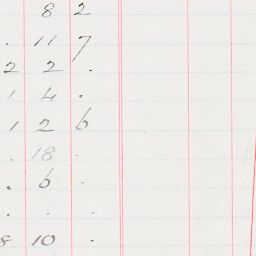 8 2
. 11 7
2 2 .
1 4 .
1 2 6
. 18 .
. 6 .
. . .
8 10 .